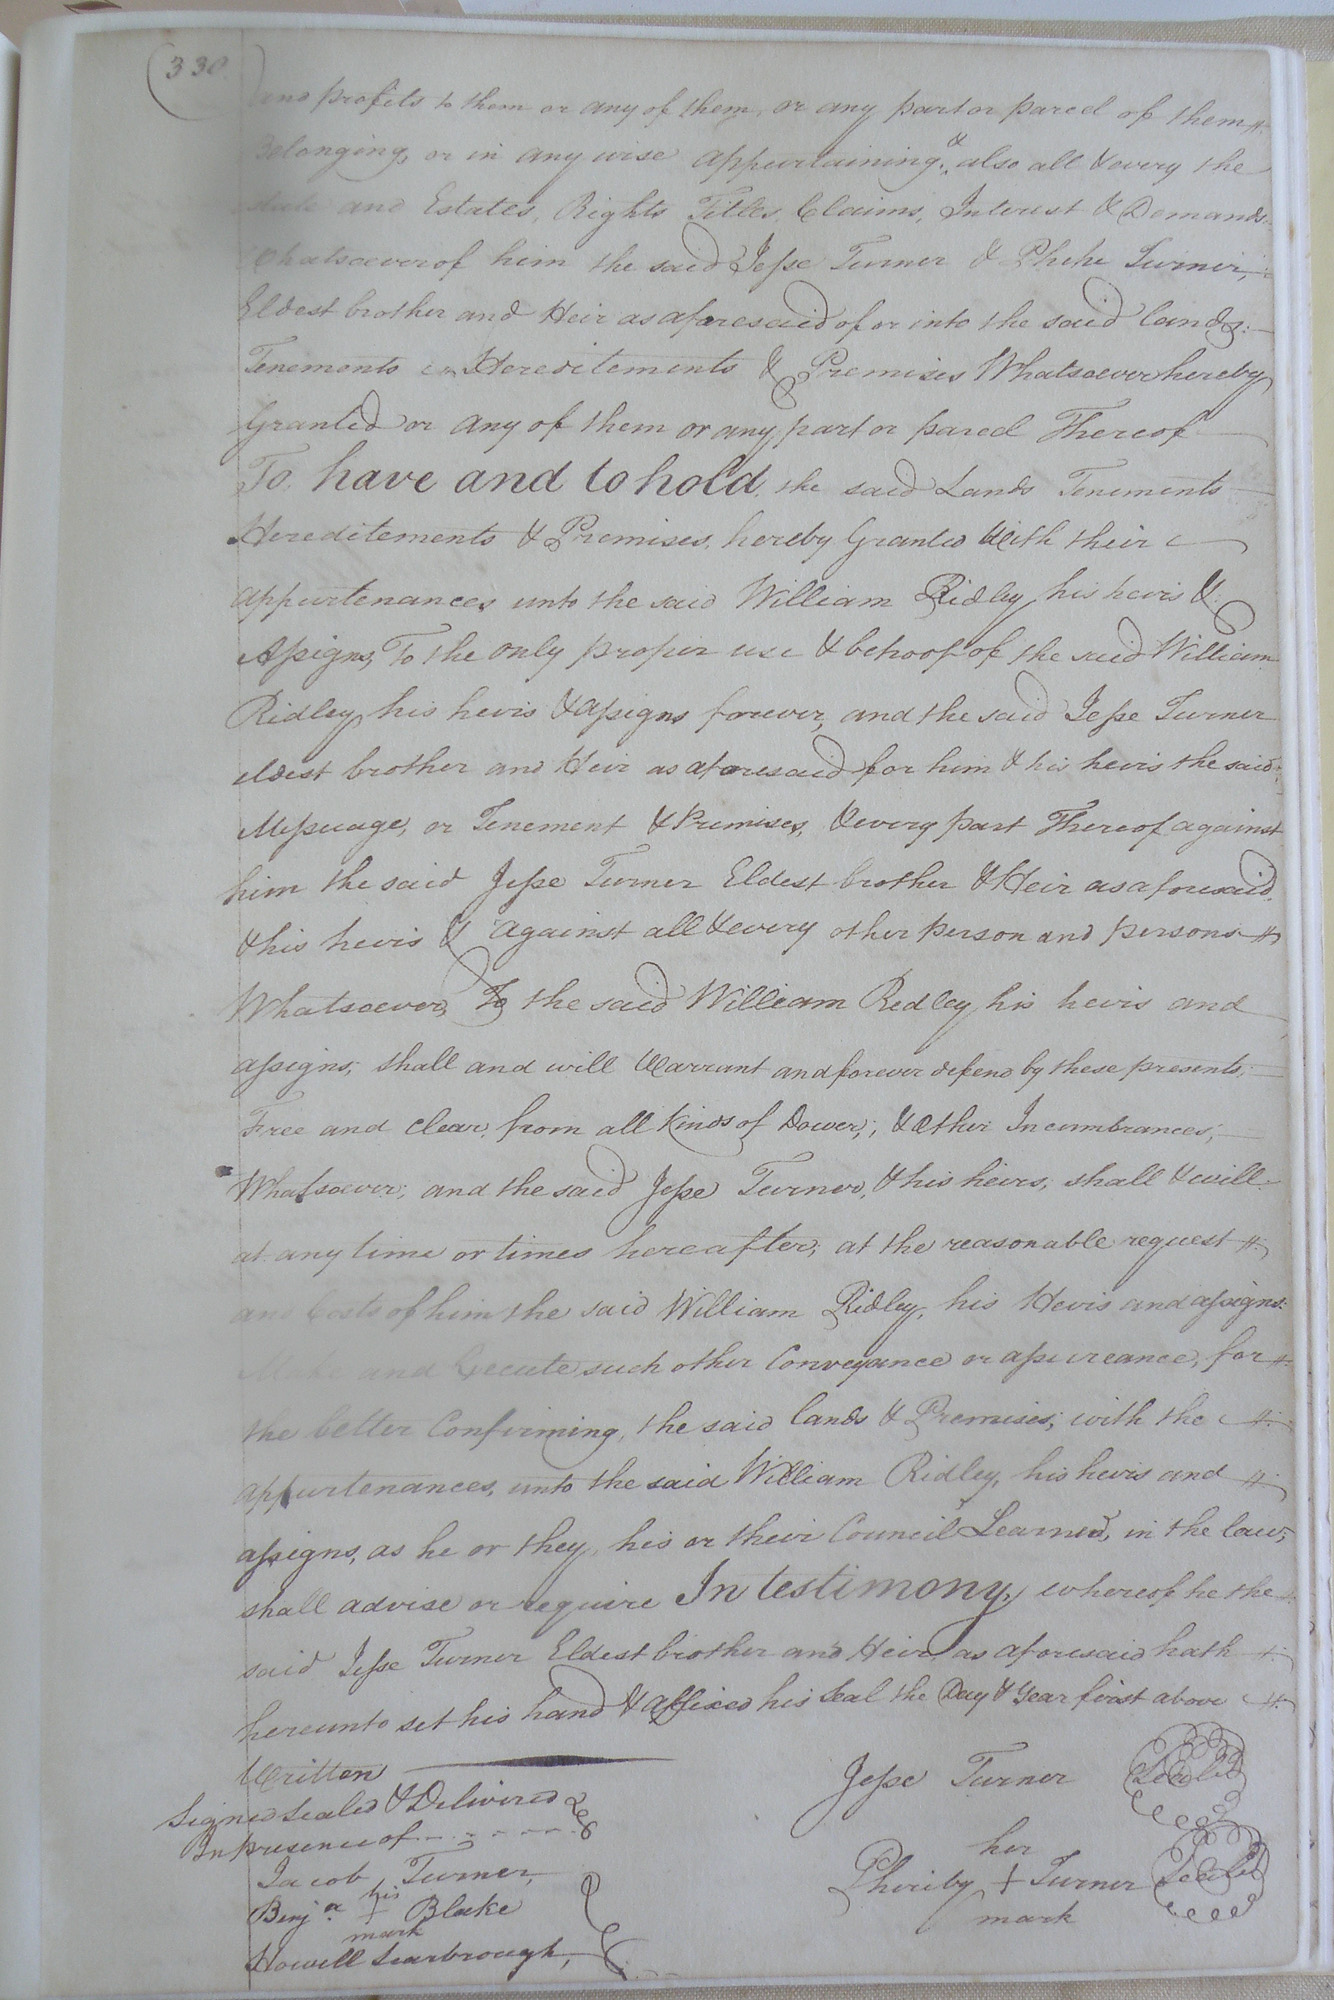 (330)
and profits to them or any of them, or any part or parcel of them
Belonging, or in any wise appurtaining, & also all & every the
State and Estates, Rights Titles, Claims, Interest & Demands
Whatsoever of him the said Jesse Turner & Phebe Turner,
Eldest brother and Heir as aforesaid of or into the said lands:
Tenements Hereditements & Premises Whatsoever hereby
Granted or any of them or any part or parcel Thereof
To have and to hold, the said Lands Tenements
Hereditements & Premises, hereby Granted With their
appurtenances unto the said William Ridley his heirs &
Assigns, To the only proper use & behoof of the said William
Ridley his heirs & assigns forever, and the said Jesse Turner
eldest brother and Heir as aforesaid for him & his heirs the said
Messuage, or Tenement & Premises, & every part Thereof against
him the said Jesse Turner Eldest brother & Heir as aforesaid
& his heirs & against all & every other person and persons
Whatsoever, To the said William Ridley his heirs and
assigns; shall and will Warrant and forever defend by these presents;
Free and clear, from all Kinds of Dower; & Other Incumbrances;
Whatsoever; and the said Jesse Turner, & his heirs; shall & will
at any time or times hereafter; at the reasonable request
and Costs of him the said William Ridley, his Heirs and assigns:
Make and Execute such other Conveyance or assureance, for
the better Confirming, the said lands & Premises; with the
appurtenances, unto the said William Ridley, his heirs and
assigns, as he or they, his or their Council Learned, in the law;
shall advise or require In testimony, whereof he the
said Jesse Turner Eldest brother and Heir, as aforesaid hath
hereunto set his hand & affixed his Seal the Day & Year first above
Written
Jesse Turner Sealed
Signed Sealed & Delivered
In presence of
her
Jacob Turner,
Pheriby + Turner Sealed
his
Benja + Blake
mark
mark
Howell Scarbrough,